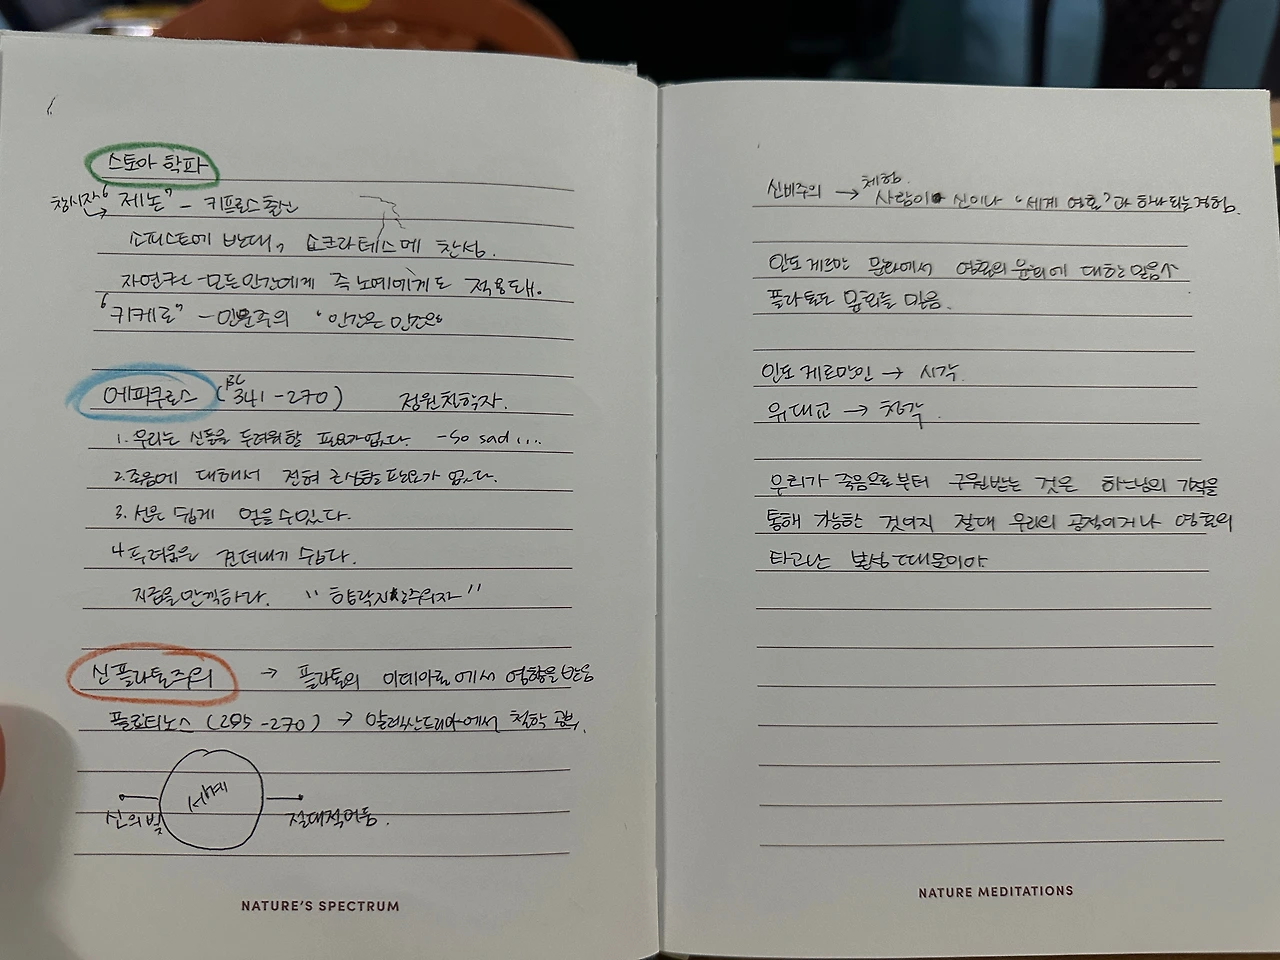 스토아 학파
창시자 "제논" - 키프로스 출신
소피스트에 반대, 소크라테스에 찬성.
자연권 - 모든 인간에게 즉 노예에게도 적용돼.
"키케로" - 인문주의 "인간은 인간의
에피쿠로스 (BC 341 - 270) 정원 철학자.
1. 우리는 신들을 두려워할 필요가 없다. - So sad ...
2. 죽음에 대해서 전혀 근심할 필요가 없다.
3. 선은 쉽게 얻을 수 있다.
4. 두려움은 견뎌내기 쉽다.
지금을 만끽하라. "향락지향주의자"
신플라톤주의 → 플라톤의 이데아론에서 영향을 받음
플로티노스 (205 - 270) → 알렉산드리아에서 철학 공부.
세계
신의 빛
절대적 어둠.
NATURE'S SPECTRUM
신비주의 → 체험
사람이 신이나 "세계 영혼"과 하나되는 경험.
인도 게르만 문화에서 영혼의 윤회에 대한 믿음
플라톤도 윤회를 믿음.
인도 게르만인 → 시각.
유대교 → 청각.
우리가 죽음으로부터 구원받는 것은 하느님의 기적을
통해 가능한 것이지 절대 우리의 공적이거나 영혼의
타고난 본성 때문이야
NATURE MEDITATIONS